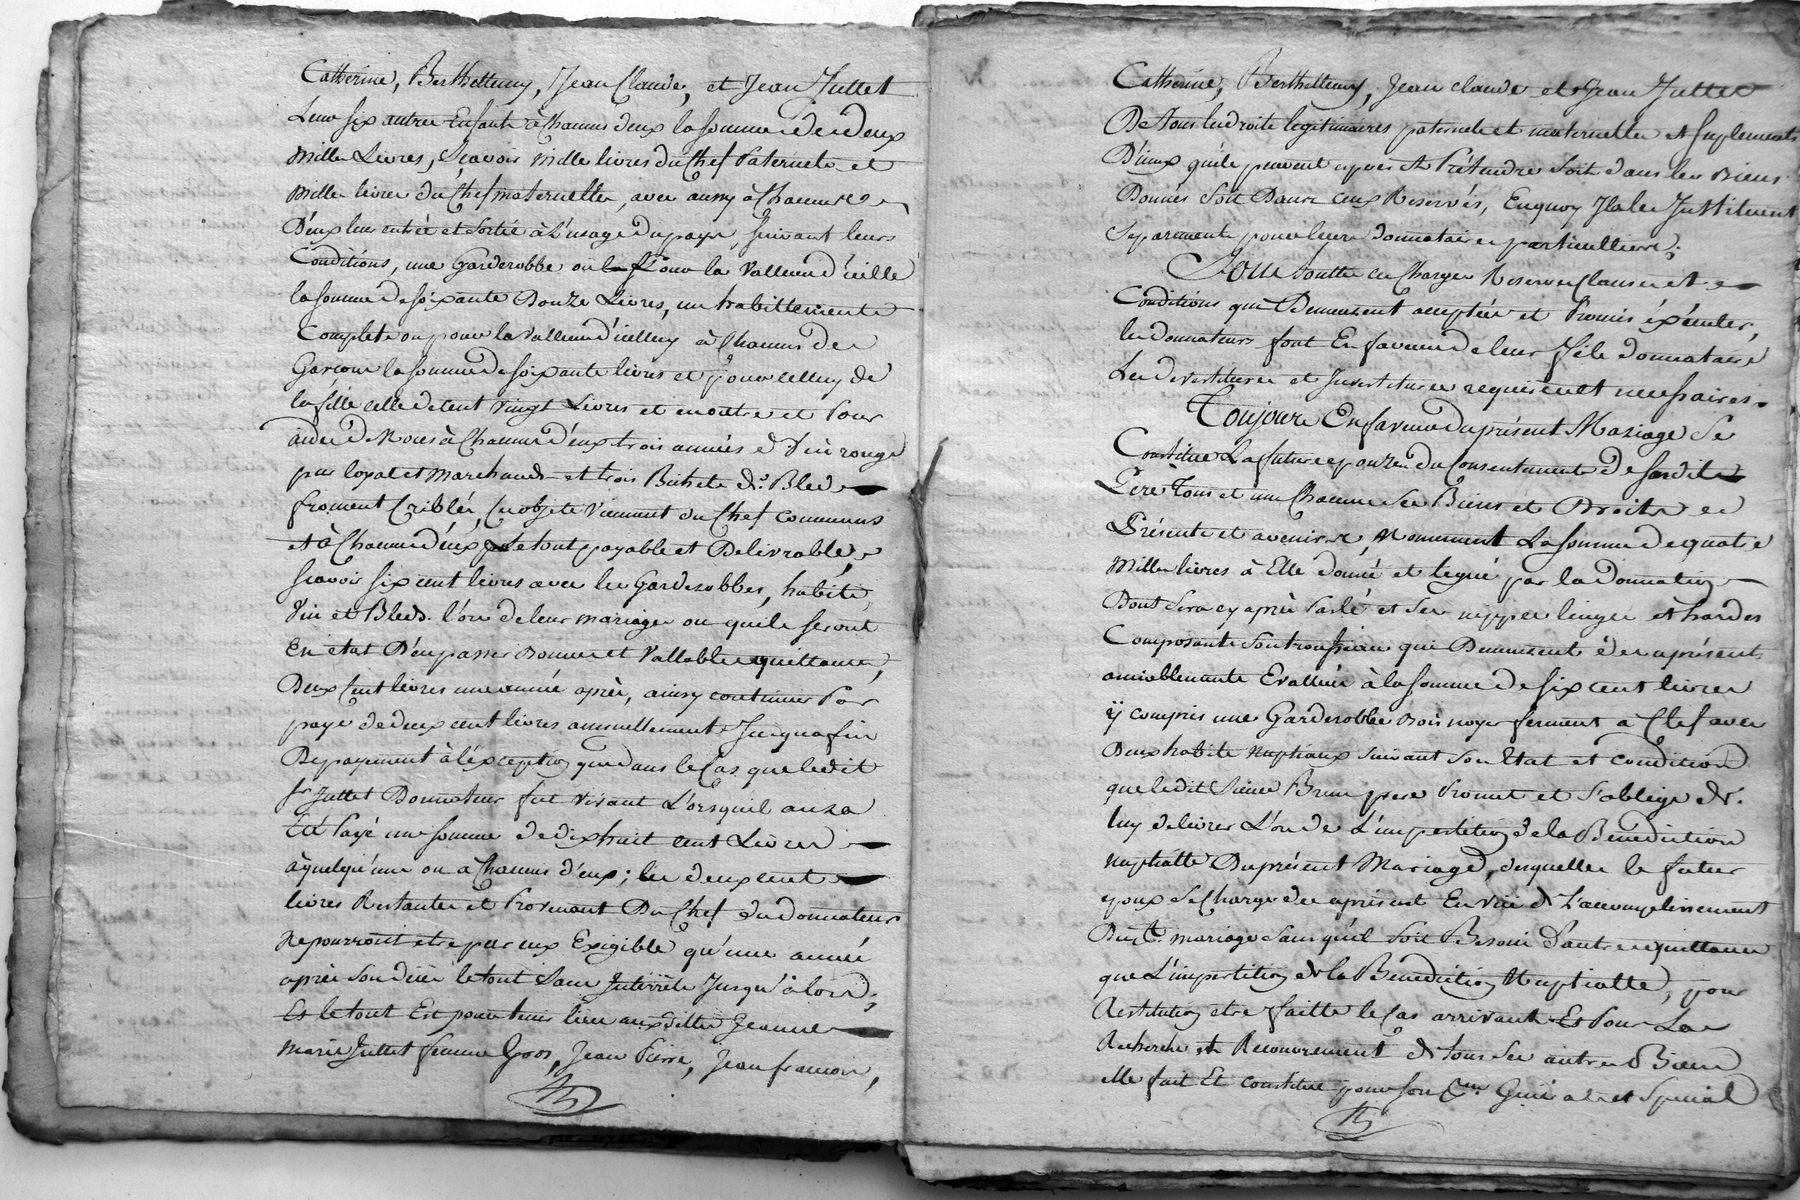 Catherine, Berthellemy, Jean Claude, et Jean Juttet
Leurs six autres Enfants à Chacuns deux la somme de deux
Mille Livres, sçavoir mille livres du Chef Paternele et
Mille livres du Chef maternelle, avec aussy à Chacunes
D'eux leur entrée et sortie à L'usage du pays, suivant leurs
Conditions, une Garderobbe ou pour la valleur d'icelle
la somme de soixante Douze Livres, un habillements
Complets ou pour la valleur d'icelluy à Chacuns des
Garçons la somme de soixante livres et pour celluy de
la fille celle de Cent Vingt Livres et en outre et Pour
aider de Noces à Chacune d'eux trois années de Vin rouge
pur loyal et Marchand et trois Bichets de Bled
froment Criblés, Ces objets Viennent du Chef communs
et à Chacune d'eux le tout payable et Delivrable,
sçavoir six cent livres avec les Garderobbes, habits,
Vin et Bleds lors de leur mariage ou qu'ils seront
En etat D'en passer Bonne et Vallable quittance,
Deux Cent livres une année après, ainsy continuer Par
paye de deux cent livres annuellement Jusqu'a fin
De payement à l'exception que dans le Cas que ledit
Sr Juttet Donnateur fut vivant Lorsquil aura
Eté Payé une somme de dix huit cent Livres
à quelqu'un ou à Chacuns d'eux; les deux cent
livres Restantes et Provenant Du Chef du donnateur
Ne pourront etre par eux Exigible qu'une année
après son décè le tout sans Intérrêts Jusqu'à lors;
Et le tout Est pour tenir lieu auxdittes Jeanne
Marie Juttet femme Goos, Jean Pierre, Jean francois,
Catherine, Berthellemy, Jean Claude et Jean Juttet
De tous leurs droits legitimaires paternels et maternelles et suplements
D'iceux qu'ils peuvent après et Prétendre soit dans les Biens
Donnés soit Dans ceux Reservés, En quoy Il les Instituent
separements pour leurs donnataires particulliers;
Sous touttes ces Charges Reserves Clauses et
Conditions qui Demeurent acceptées et Promis éxécuter,
les donnateurs font En faveur de leur fils donnataire
Les devestitures et Investitures requises et necessaires.
Toujours En faveur du présent Mariage Se
Constitue La future epouze du Consentement de sondit
Père Tous et un Chacune ses Biens et Droits
Présents et avenirs, Nommement La somme de quatre
Mille livres à Elle donné et legué par la Donnation
Dont sera cy après Parlé et ses nippes linges et hardes
Composants son trousseau qui Demeurent des aprésent
amiablements Evallués à la somme de six cent livres
ÿ compris une Garderobbe Bois noyer ferment à Clef avec
Deux habits nuptiaux suivant son Etat et condition
que ledit Sieur Brun pere Promet et s'oblige de
luy delivrer L'ors de L'impertition de la Benediction
Nuptialle Du présent Mariage, desquelles le futur
epoux se Charge des aprésent En vüe de L'accomplissement
Dudt. mariage sans qu'il soit Besoin d'autres quittances
que L'impertition de la Benediction Nuptialle, pour
Restitution etre faitte le Cas arrivant Et Pour La
Recherche et Recouvrement de tous ses autres Biens
elle fait Et constitue pour son Pr. Général et spécial